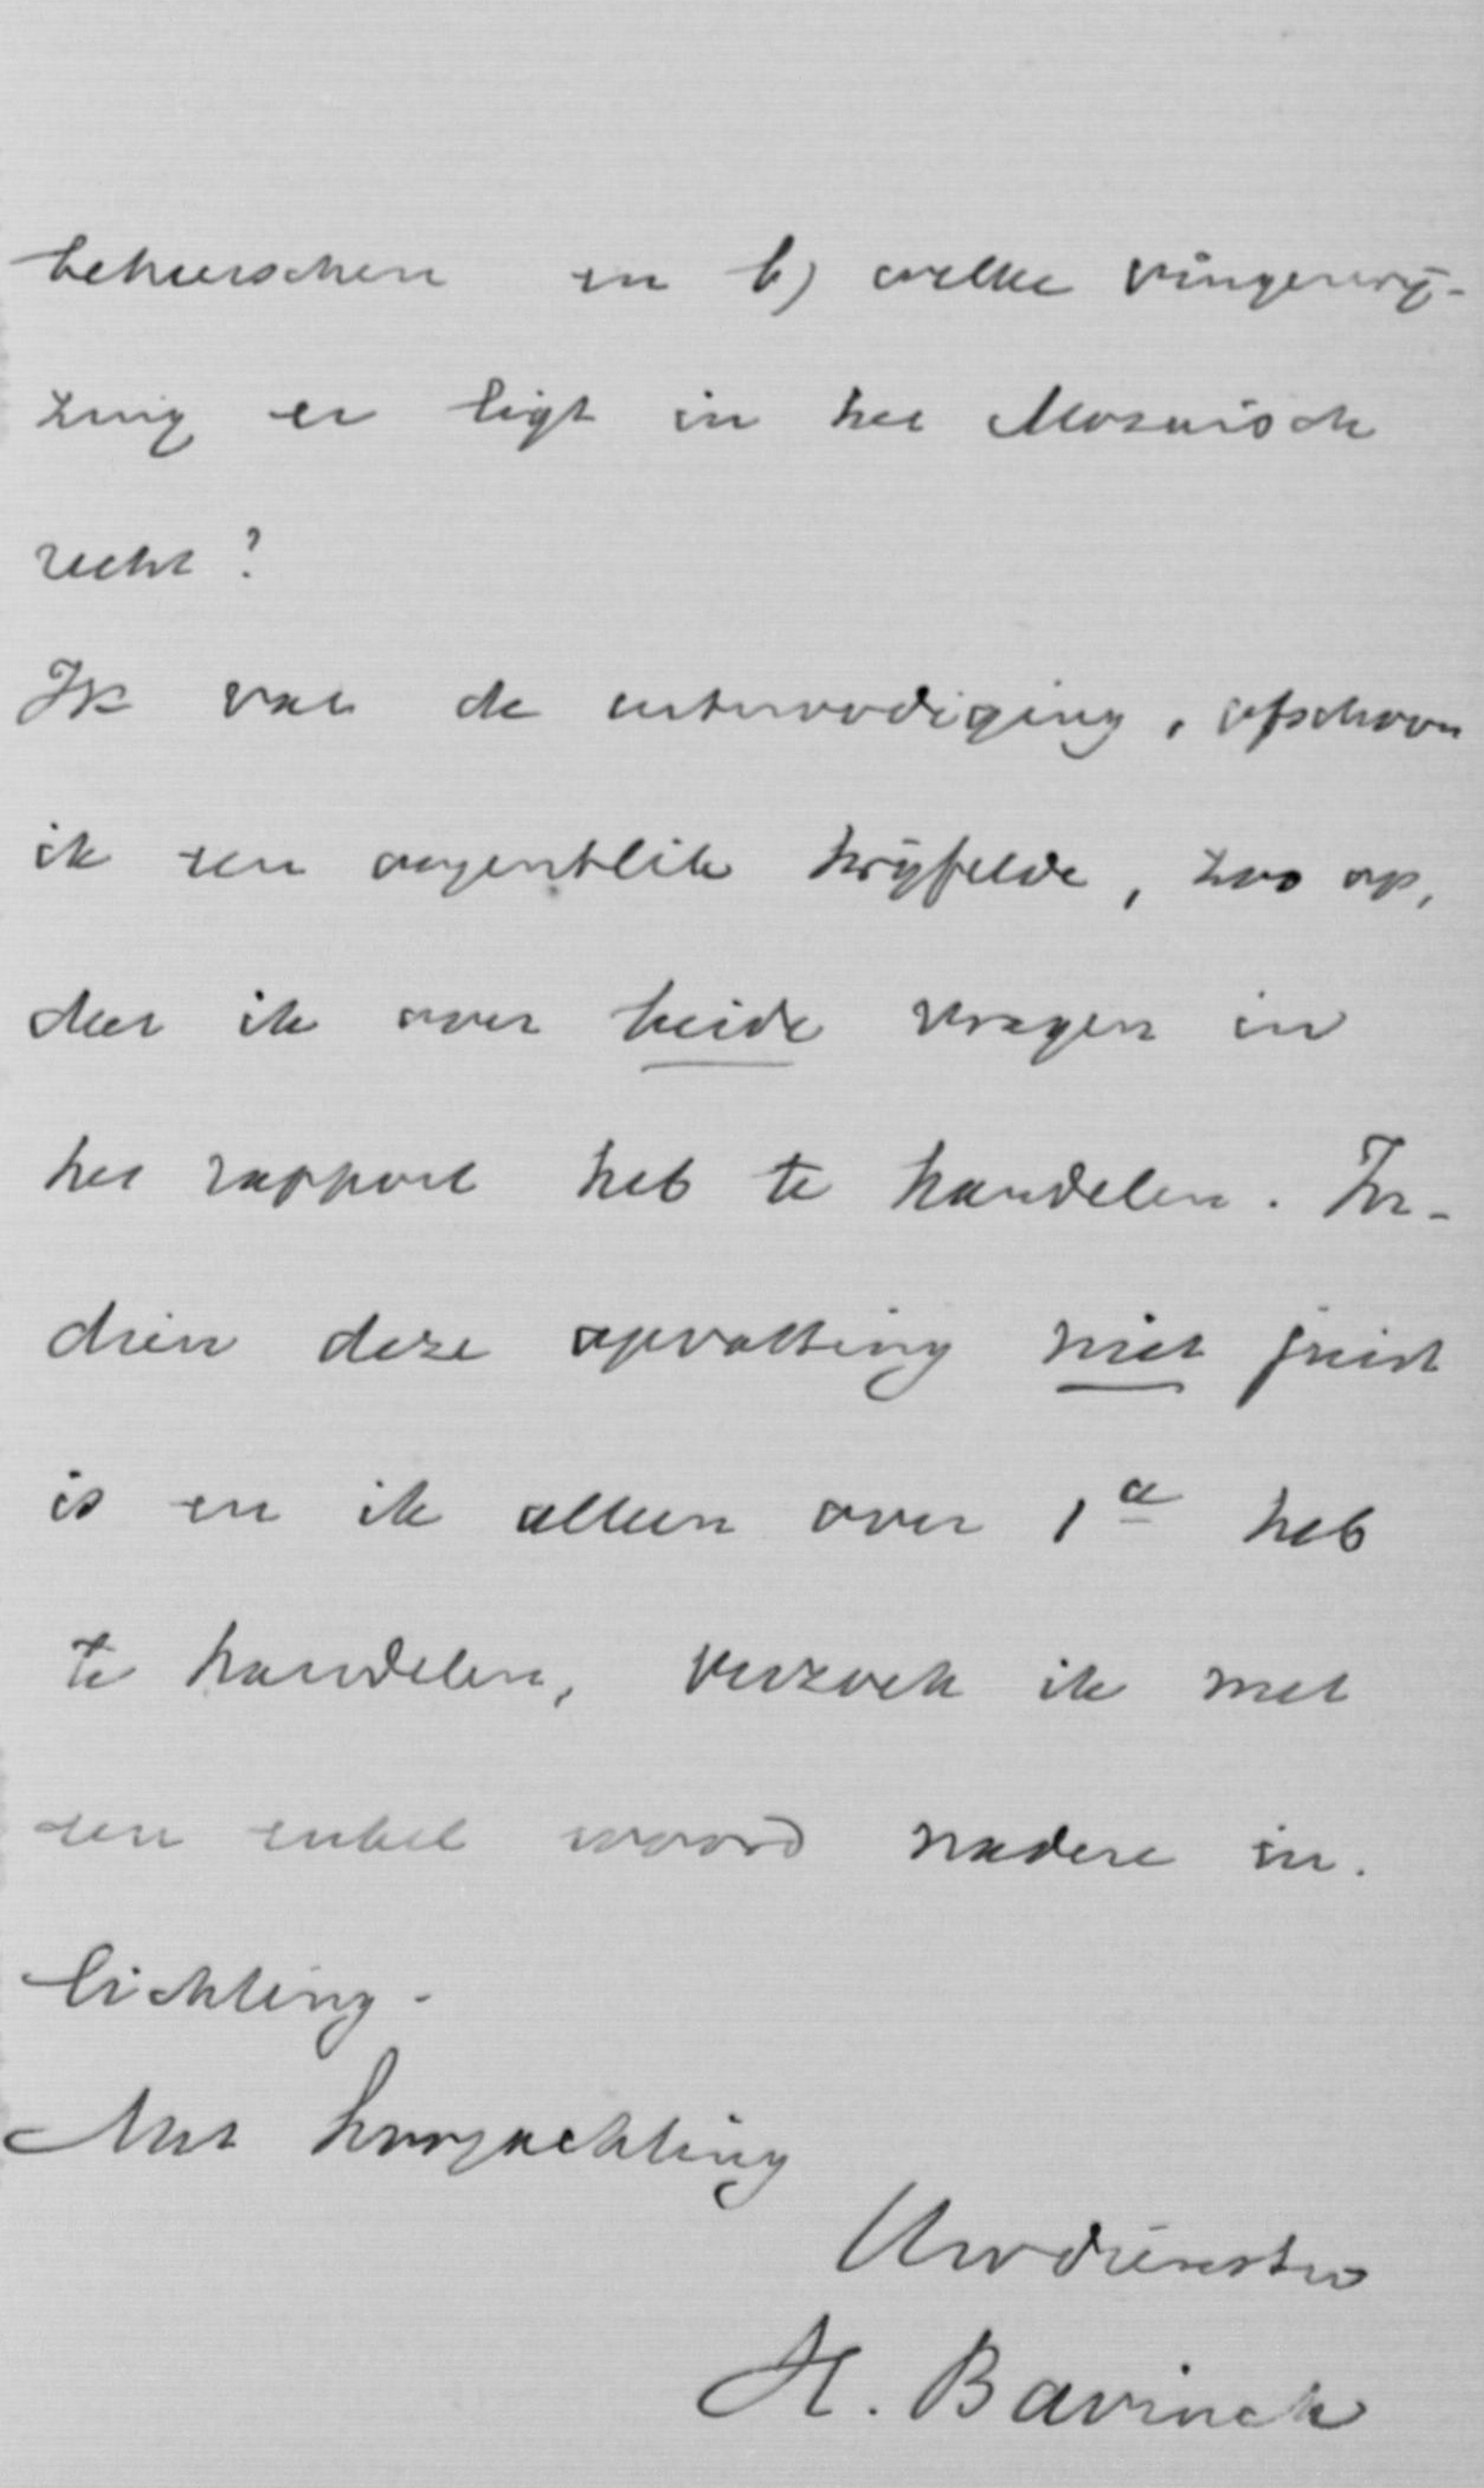 beheerschen en b) welke vingerwij-
zing er ligt in het Mozaïsch
recht?
Ik vat de uitnoodiging, ofschoon
ik een oogenblik twijfelde, zoo op,
dat ik over beide vragen in
het rapport heb te handelen. In-
dien deze opvatting niet juist
is en ik alleen over 1a heb
te handelen, verzoek ik met
een enkel woord nadere in-
lichting.
Met hoogachting
Uwdienstw
H. Bavinck